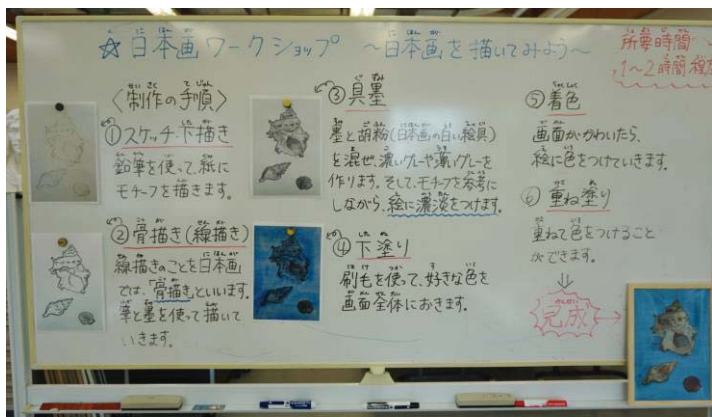 ☆日本画ワークショップ ～日本画を描いてみよう～
所要時間
1～2時間程度
〈制作の手順〉
①スケッチ・下描き
鉛筆を使って、紙に
モチーフを描きます。
②骨描き(線描き)
線描きのことを日本画
では、「骨描き」といいます。
筆と墨を使って描いて
いきます。
③具墨
墨と胡粉(日本画の白い絵具)
を混ぜ、濃いグレーや薄いグレーを
作ります。そして、モチーフを参考に
しながら、絵に濃淡をつけます。
④下塗り
刷毛を使って、好きな色を
画面全体におきます。
⑤着色
画面がかわいたら、
絵に色をつけていきます。
⑥重ね塗り
重ねて色をつけること
ができます。
完成